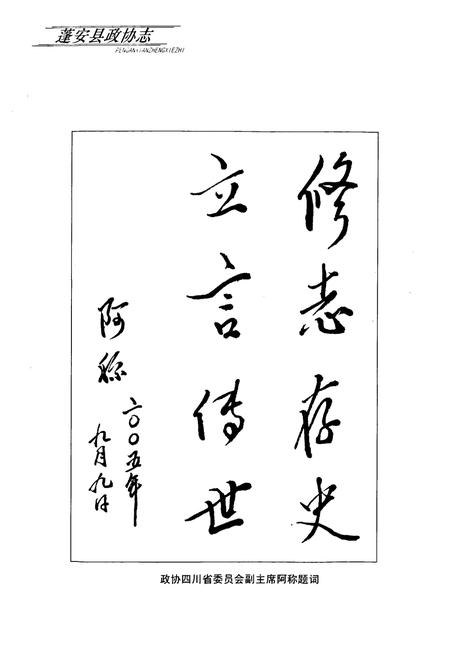 蓬安县政协志
PENGANXIANZHENGXIEZHI
修志存史
立言传世
阿称
二〇〇五年
九月九日
政协四川省委员会副主席阿称题词